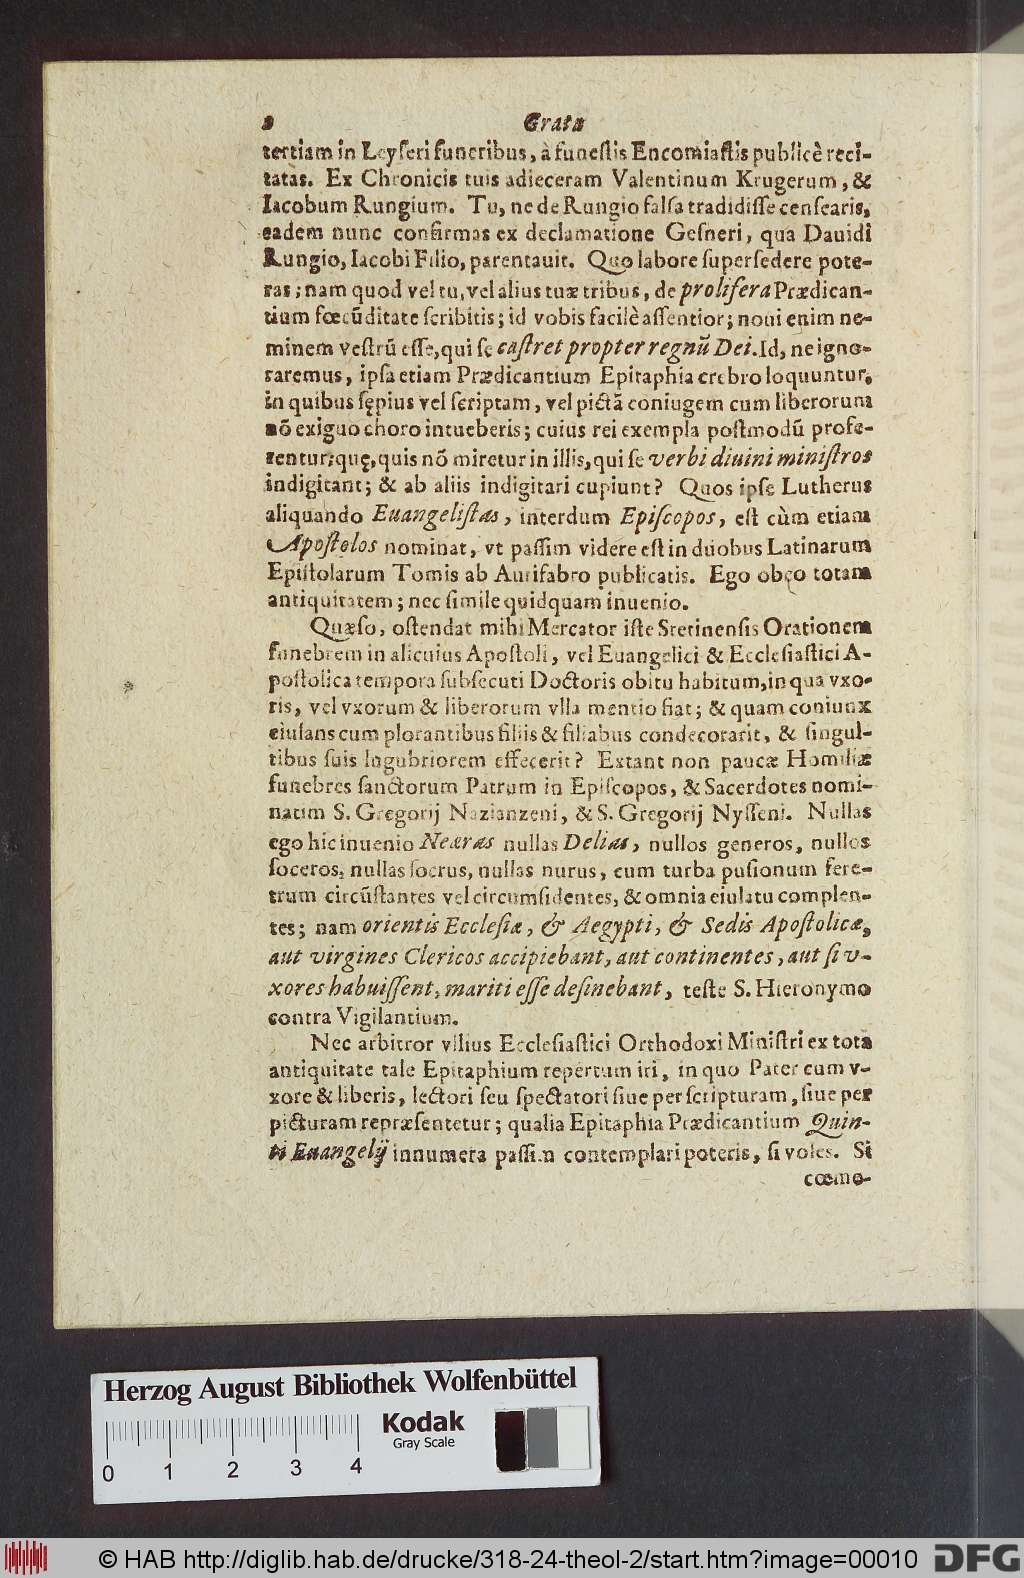 8 Grata
tertiam in Leyſeri funeribus, à funeſtis Encomiaſtis publicè reci-
tatas. Ex Chronicis tuis adieceram Valentinum Krugerum, &
Iacobum Rungium. Tu, ne de Rungio falſa tradidiſſe cenſearis,
eadem nunc confirmas ex declamatione Geſneri, qua Dauidi
Rungio, Iacobi Filio, parentauit. Quo labore ſuperſedere pote-
ras; nam quod vel tu, vel alius tuæ tribus, de prolifera Prædican-
tium fœcũditate ſcribitis; id vobis facilè aſſentior; noui enim ne-
minem veſtrũ eſſe, qui ſe caſtret propter regnũ Dei. Id, ne igno-
raremus, ipſa etiam Prædicantium Epitaphia crebro loquuntur,
in quibus ſępius vel ſcriptam, vel pictã coniugem cum liberorum
nõ exiguo choro intueberis; cuius rei exempla poſtmodũ profe-
rentur; quę, quis nõ miretur in illis, qui ſe verbi diuini miniſtros
indigitant; & ab aliis indigitari cupiunt? Quos ipſe Lutherus
aliquando Euangeliſtas, interdum Epiſcopos, eſt cùm etiam
Apoſtolos nominat, vt paſſim videre eſt in duobus Latinarum
Epiſtolarum Tomis ab Aurifabro publicatis. Ego obęo totam
antiquitatem; nec ſimile quidquam inuenio.
Quæſo, oſtendat mihi Mercator iſte Stetinenſis Orationem
funebrem in alicuius Apoſtoli, vel Euangelici & Eccleſiaſtici A-
poſtolica tempora ſubſecuti Doctoris obitu habitum, in qua vxo-
ris, vel vxorum & liberorum vlla mentio fiat; & quam coniunx
eiulans cum plorantibus filiis & filiabus condecorarit, & ſingul-
tibus ſuis lugubriorem effecerit? Extant non paucæ Homiliæ
funebres ſanctorum Patrum in Epiſcopos, & Sacerdotes nomi-
natim S. Gregorij Nazianzeni, & S. Gregorij Nyſſeni. Nullas
ego hic inuenio Neæras nullas Delias, nullos generos, nullos
ſoceros, nullas ſocrus, nullas nurus, cum turba puſionum fere-
trum circũſtantes vel circumſidentes, & omnia eiulatu complen-
tes; nam orientis Eccleſiæ, & Aegypti, & Sedis Apoſtolicæ,
aut virgines Clericos accipiebant, aut continentes, aut ſi v-
xores habuiſſent, mariti eſſe deſinebant, teſte S. Hieronymo
contra Vigilantium.
Nec arbitror vllius Eccleſiaſtici Orthodoxi Miniſtri ex tota
antiquitate tale Epitaphium repertum iri, in quo Pater cum v-
xore & liberis, lectori ſeu ſpectatori ſiue per ſcripturam, ſiue per
picturam repræſentetur; qualia Epitaphia Prædicantium Quin-
ti Euangelij innumera paſſim contemplari poteris, ſi voles. Si
cœme-
Herzog August Bibliothek Wolfenbüttel
Kodak
Gray Scale
0 1 2 3 4
© HAB http://diglib.hab.de/drucke/318-24-theol-2/start.htm?image=00010 DFG